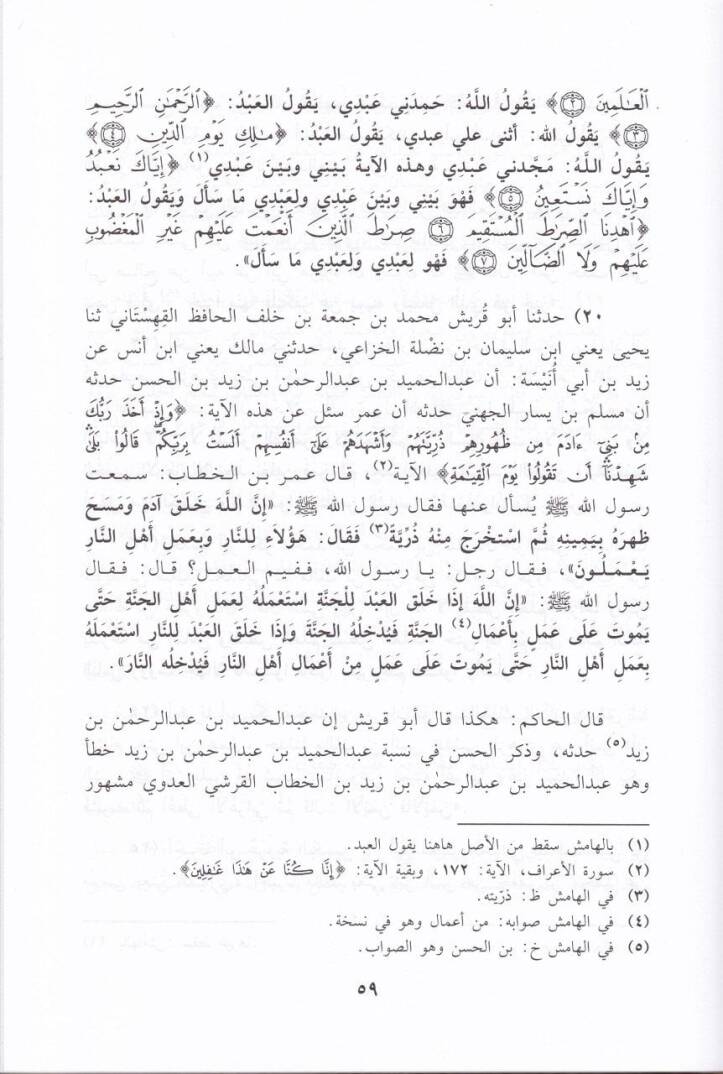 ٱلْعَٰلَمِينَ ﴿٢﴾﴾ يَقُولُ اللَّهُ: حَمِدَنِي عَبْدِي، يَقُولُ العَبْدُ: ﴿ٱلرَّحْمَٰنِ ٱلرَّحِيمِ
﴿٣﴾﴾ يَقُولُ الله: أثنى علي عبدي، يَقُولُ العَبْدُ: ﴿مَٰلِكِ يَوْمِ ٱلدِّينِ ﴿٤﴾﴾
يَقُولُ اللَّهُ: مَجَّدني عَبْدِي وهذه الآيةُ بَيْنِي وبَيْنَ عَبْدِي(١) ﴿إِيَّاكَ نَعْبُدُ
وَإِيَّاكَ نَسْتَعِينُ ﴿٥﴾﴾ فَهْوَ بَيْنِي وبَيْنَ عَبْدِي ولِعَبْدِي مَا سَأَلَ وَيَقُولُ العَبْدُ:
﴿ٱهْدِنَا ٱلصِّرَٰطَ ٱلْمُسْتَقِيمَ ﴿٦﴾ صِرَٰطَ ٱلَّذِينَ أَنْعَمْتَ عَلَيْهِمْ غَيْرِ ٱلْمَغْضُوبِ
عَلَيْهِمْ وَلَا ٱلضَّآلِّينَ ﴿٧﴾﴾ فَهُو لِعَبْدِي وَلِعَبْدِي مَا سَأَلَ».
٢٠) حدثنا أبو قُريش محمد بن جمعة بن خلف الحافظ القِهِسْتَاني ثنا
يحيى يعني ابن سليمان بن نضْلة الخزاعي، حدثني مالك يعني ابن أنس عن
زيد بن أبي أُنَيْسَة: أن عبدالحميد بن عبدالرحمٰن بن زيد بن الحسن حدثه
أن مسلم بن يسار الجهنيّ حدثه أن عمر سئل عن هذه الآية: ﴿وَإِذْ أَخَذَ رَبُّكَ
مِنۢ بَنِىٓ ءَادَمَ مِن ظُهُورِهِمْ ذُرِّيَّتَهُمْ وَأَشْهَدَهُمْ عَلَىٰٓ أَنفُسِهِمْ أَلَسْتُ بِرَبِّكُمْ ۖ قَالُوا۟ بَلَىٰ ۛ
شَهِدْنَآ ۛ أَن تَقُولُوا۟ يَوْمَ ٱلْقِيَٰمَةِ﴾ الآية(٢)، قال عمر بن الخطاب: سمعت
رسول الله ﷺ يُسأل عنها فقال رسول الله ﷺ: «إنَّ اللَّهَ خَلَقَ آدَمَ وَمَسَحَ
ظهرَهُ بِيَمِينِهِ ثُمَّ اسْتَخْرَجَ مِنْهُ ذُرِّيَةً(٣) فَقَالَ: هَؤُلاَءِ لِلنَّارِ وَبِعَمَلِ أَهْلِ النَّارِ
يَعْمَلُونَ»، فقال رجل: يا رسول الله، ففيم العمل؟ قال: فقال
رسول الله ﷺ: «إنَّ اللَّهَ إذَا خَلَقَ العَبْدَ لِلْجَنَّةِ اسْتَعْمَلَهُ لِعَمَلِ أَهْلِ الجَنَّةِ حَتَّى
يَمُوتَ عَلَى عَمَلٍ بِأَعْمَالِ(٤) الجَنَّةِ فَيُدْخِلُهُ الجَنَّةَ وَإذَا خَلَقَ العَبْدَ لِلنَّارِ اسْتَعْمَلَهُ
بِعَمَلِ أَهْلِ النَّارِ حَتَّى يَمُوتَ عَلَى عَمَلٍ مِنْ أَعْمَالِ أَهْلِ النَّارِ فَيُدْخِلُه النَّارَ».
قال الحاكم: هكذا قال أبو قريش إن عبدالحميد بن عبدالرحمٰن بن
زيد(٥) حدثه، وذكر الحسن في نسبة عبدالحميد بن عبدالرحمٰن بن زيد خطأ
وهو عبدالحميد بن عبدالرحمٰن بن زيد بن الخطاب القرشي العدوي مشهور
(١) بالهامش سقط من الأصل هاهنا يقول العبد.
(٢) سورة الأعراف، الآية: ١٧٢، وبقية الآية: ﴿إِنَّا كُنَّا عَنْ هَٰذَا غَٰفِلِينَ﴾.
(٣) في الهامش ظ: ذرّيته.
(٤) في الهامش صوابه: من أعمال وهو في نسخة.
(٥) في الهامش خ: بن الحسن وهو الصواب.
٥٩